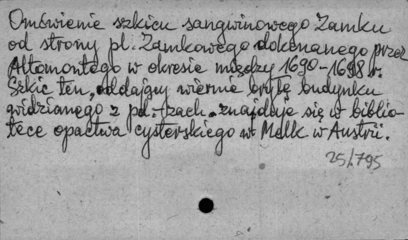 Omówienie szkicu sangwinowego Zamku
od strony pl. Zamkowego dokonanego przez
Altomontego w okresie między 1690-1698 r.
Szkic ten, oddający wiernie bryłę budynku
widzianego z pd.-zach. znajduje się w biblio-
tece opactwa cysterskiego w Melk w Austrii.
25/795